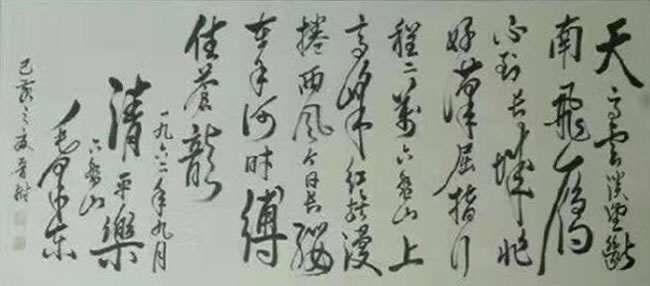 天高雲淡望斷
南飛雁
不到长城非
好漢屈指行
程二萬六盘山上
高峰红旗漫
捲西風今日长缨
在手何时縛
住蒼龍
一九六二年九月
清平樂
六盘山
毛泽东
己亥之夏